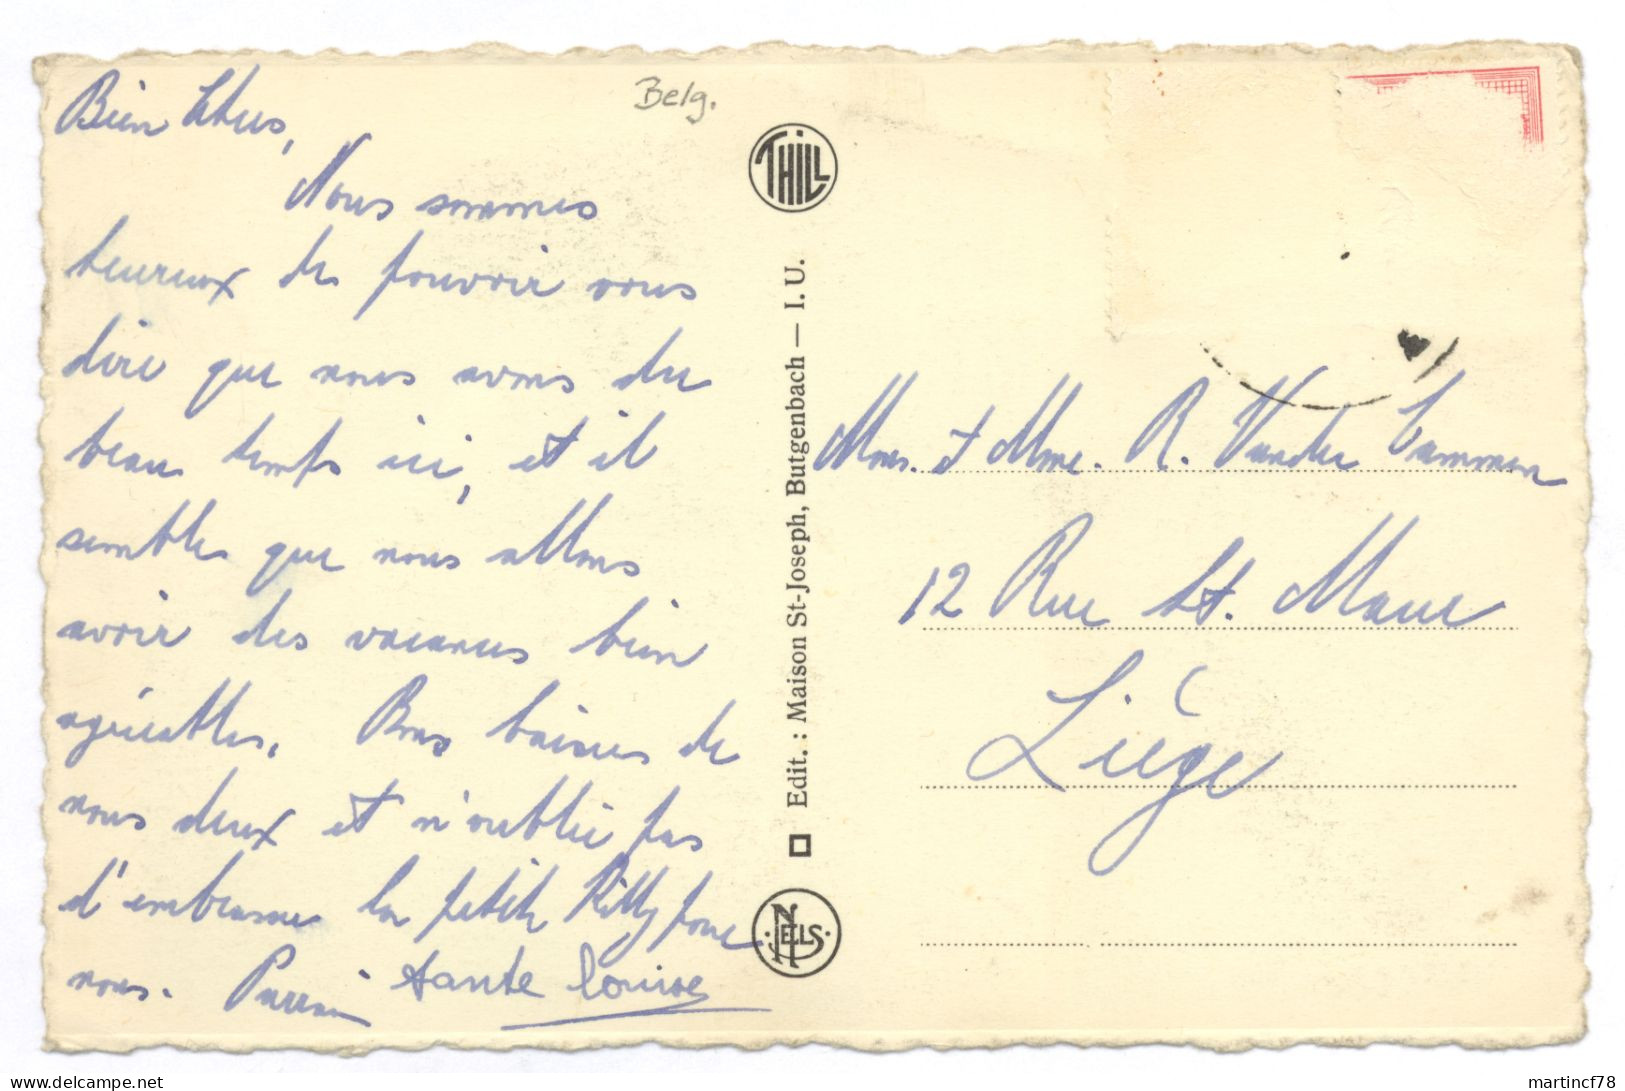 Belg.
Bien chers,
Nous sommes
heureux de pouvoir vous
dire que nous avons du
beau temps ici, et il
semble que nous allons
avoir des vacances bien
agréables. Bons baisers de
nous deux et n'oublie pas
d'embrasser la petite Kitty pour
nous. Parrain tante Louise
THILL
Edit. : Maison St-Joseph, Butgenbach — I. U.
NELS
Mons. & Mme. R. Vander Cammen
12 Rue St. Maur
Liège
martincf78
delcampe.net